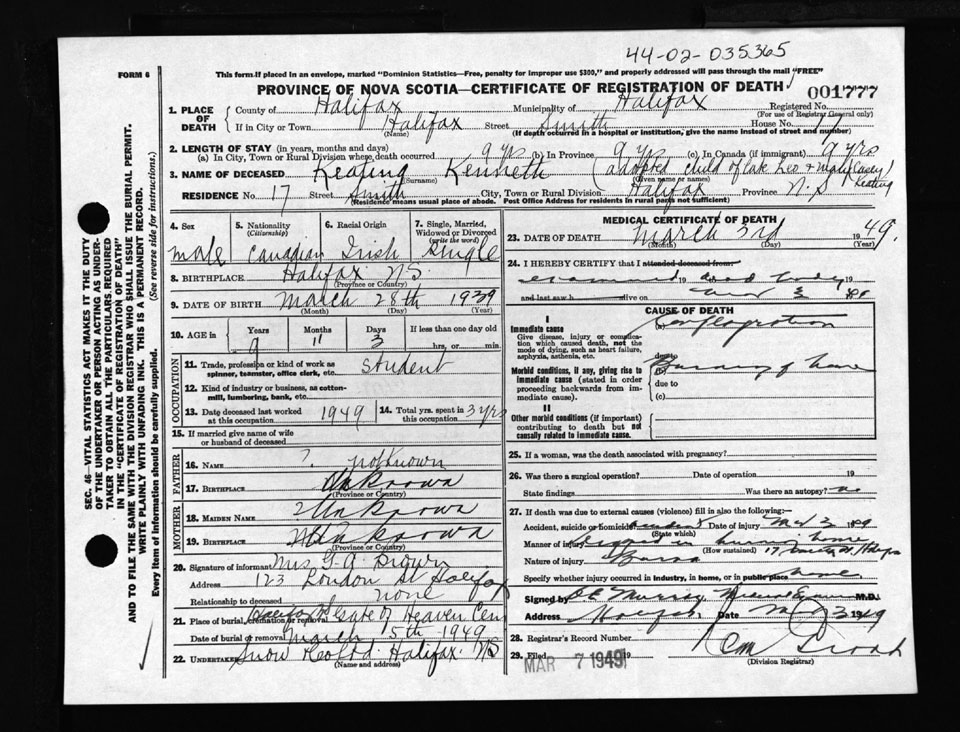 44-02-035365
FORM 6
This form if placed in an envelope, marked "Dominion Statistics—Free, penalty for improper use $300," and properly addressed will pass through the mail "FREE"
PROVINCE OF NOVA SCOTIA—CERTIFICATE OF REGISTRATION OF DEATH
001777
1. PLACE OF DEATH
County of Halifax Municipality of Halifax Registered No.
(For use of Registrar General only)
If in City or Town Halifax Street Smith House No. 17
(Name) (If death occurred in a hospital or institution, give the name instead of street and number)
2. LENGTH OF STAY (in years, months and days)
(a) In City, Town or Rural Division where death occurred 9 yrs (b) In Province 9 yrs (c) In Canada (if immigrant) 9 yrs
3. NAME OF DECEASED Keating Kenneth (adopted child of late Leo + Mary (Casey) Keating
(Surname) (Given name or names)
RESIDENCE No. 17 Street Smith City, Town or Rural Division Halifax Province N.S
(Residence means usual place of abode. Post Office Address for residents in rural parts not sufficient)
4. Sex
male
5. Nationality
(Citizenship)
Canadian
6. Racial Origin
Irish
7. Single, Married, Widowed or Divorced
(write the word)
Single
8. BIRTHPLACE Halifax N.S.
(Province or Country)
9. DATE OF BIRTH March 28th 1939
(Month) (Day) (Year)
10. AGE in
Years Months Days If less than one day old
9 11 3 hrs. or min.
OCCUPATION
11. Trade, profession or kind of work as spinner, teamster, office clerk, etc. student
12. Kind of industry or business, as cotton-mill, lumbering, bank, etc.
13. Date deceased last worked at this occupation 1949
14. Total yrs. spent in this occupation 3 yrs
15. If married give name of wife or husband of deceased
FATHER
16. NAME ? not known
17. BIRTHPLACE Unknown
(Province or Country)
MOTHER
18. MAIDEN NAME Unknown
19. BIRTHPLACE Unknown
(Province or Country)
20. Signature of informant Mrs G. A. Brown
Address 123 London St Halifax
Relationship to deceased none
21. Place of burial, cremation or removal Gate of Heaven Cem
Date of burial or removal March 5th 1949
22. Undertaker Snow Halifax NS
(Name and address)
MEDICAL CERTIFICATE OF DEATH
23. DATE OF DEATH March 3rd 1949
(Month) (Day) (Year)
24. I HEREBY CERTIFY that I attended deceased from
examined dead body 19
and last saw h alive on 3
CAUSE OF DEATH
I
Immediate cause
Give disease, injury or complication which caused death, not the mode of dying, such as heart failure, asphyxia, asthenia, etc.
Conflagration
due to
Morbid conditions, if any, giving rise to immediate cause (stated in order proceeding backwards from immediate cause).
Burning of home
due to
(c)
II
Other morbid conditions (if important) contributing to death but not causally related to immediate cause.
25. If a woman, was the death associated with pregnancy?
26. Was there a surgical operation? Date of operation 19
State findings Was there an autopsy? no
27. If death was due to external causes (violence) fill in also the following:—
Accident, suicide or homicide? Date of injury 3
(State which)
Manner of injury in burning home
(How sustained)
Nature of injury Burns
Specify whether injury occurred in industry, in home, or in public place home
Signed by Murray Medical Examiner M.D.
Address Date 3 1949
28. Registrar's Record Number
29. Filed MAR 7 1949 19
(Division Registrar)
SEC. 46—VITAL STATISTICS ACT MAKES IT THE DUTY
OF THE UNDERTAKER OR PERSON ACTING AS UNDER-
TAKER TO OBTAIN ALL THE PARTICULARS REQUIRED
IN THE "CERTIFICATE OF REGISTRATION OF DEATH"
AND TO FILE THE SAME WITH THE DIVISION REGISTRAR WHO SHALL ISSUE THE BURIAL PERMIT.
WRITE PLAINLY WITH UNFADING INK. THIS IS A PERMANENT RECORD.
Every item of Information should be carefully supplied. (See reverse side for instructions.)